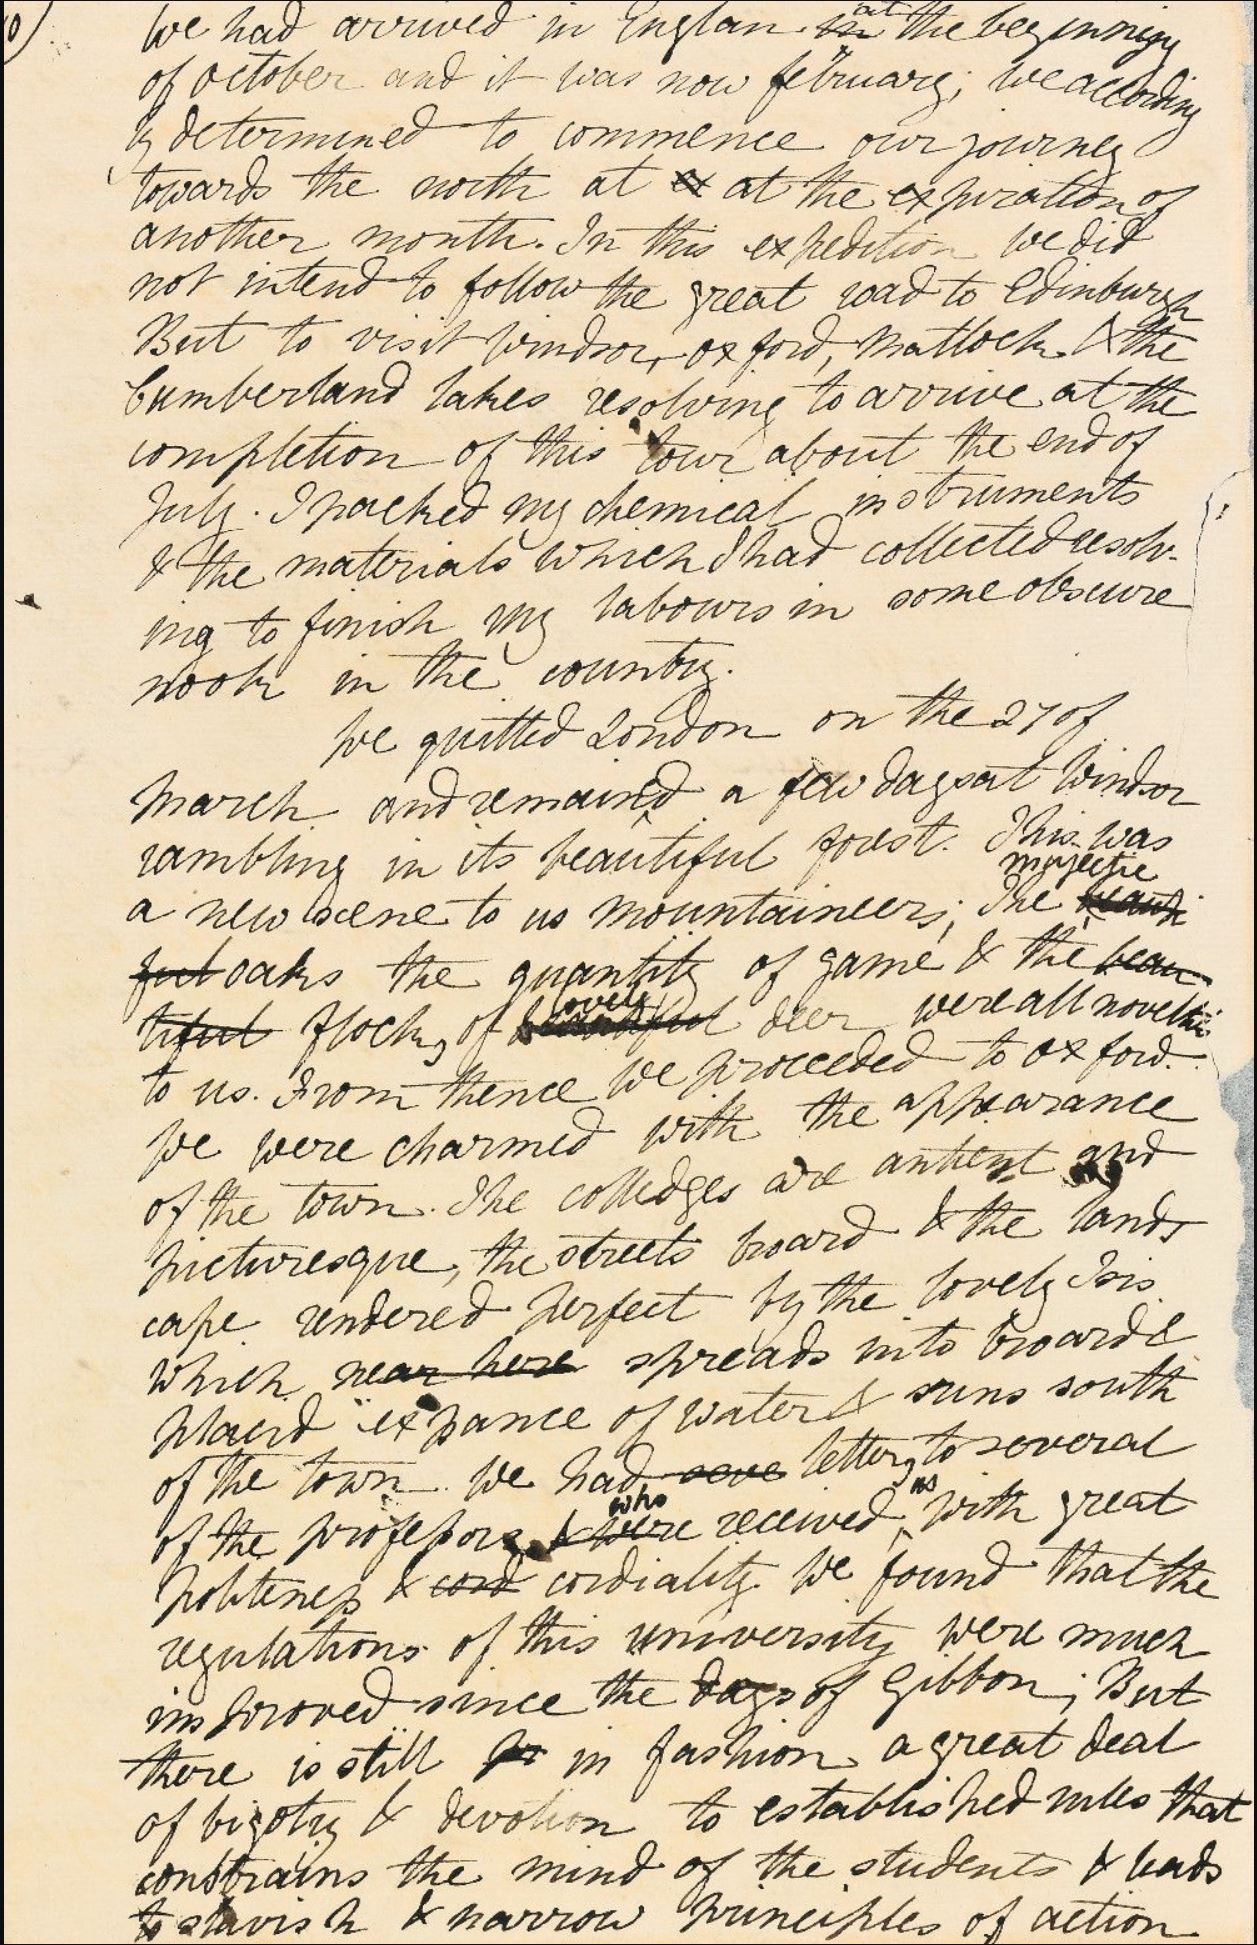 We had arrived in Englan in at the beginning
of october and it was now february; we according
ly determined to commence our journey
towards the north at ex at the expiration of
another month. In this expedition we did
not intend to follow the great road to Edinburgh
But to visit Windsor, oxford, Matlock & the
Cumberland lakes resolving to arrive at the
completion of this tour about the end of
July. I packed my chemical instruments
& the materials which I had collected resolv-
ing to finish my labours in some obscure
nook in the country.
We quitted London on the 27 of
March and remained a few days at Windsor
rambling in its beautiful forest. This was
a new scene to us mountaineers; The beauti majestic
ful oaks the quantity of game & the beau
tiful flocks of beautiful lovely deer were all novelties
to us. From thence we proceeded to oxford.
We were charmed with the appearance
of the town. The colledges are antient and
picturesque, the streets broard & the lands
cape rendered perfect by the lovely Isis
which near here spreads into broard &
placid expance of water & runs south
of the town. We had seve letters to several
of the professors & were who received us with great
politeness & cord cordiality. We found that the
regulations of this university were much
improved since the days of Gibbon; But
there is still in fashion a great deal
of bigotry & devotion to established rules that
constrains the mind of the students & leads
to slavish & narrow principles of action